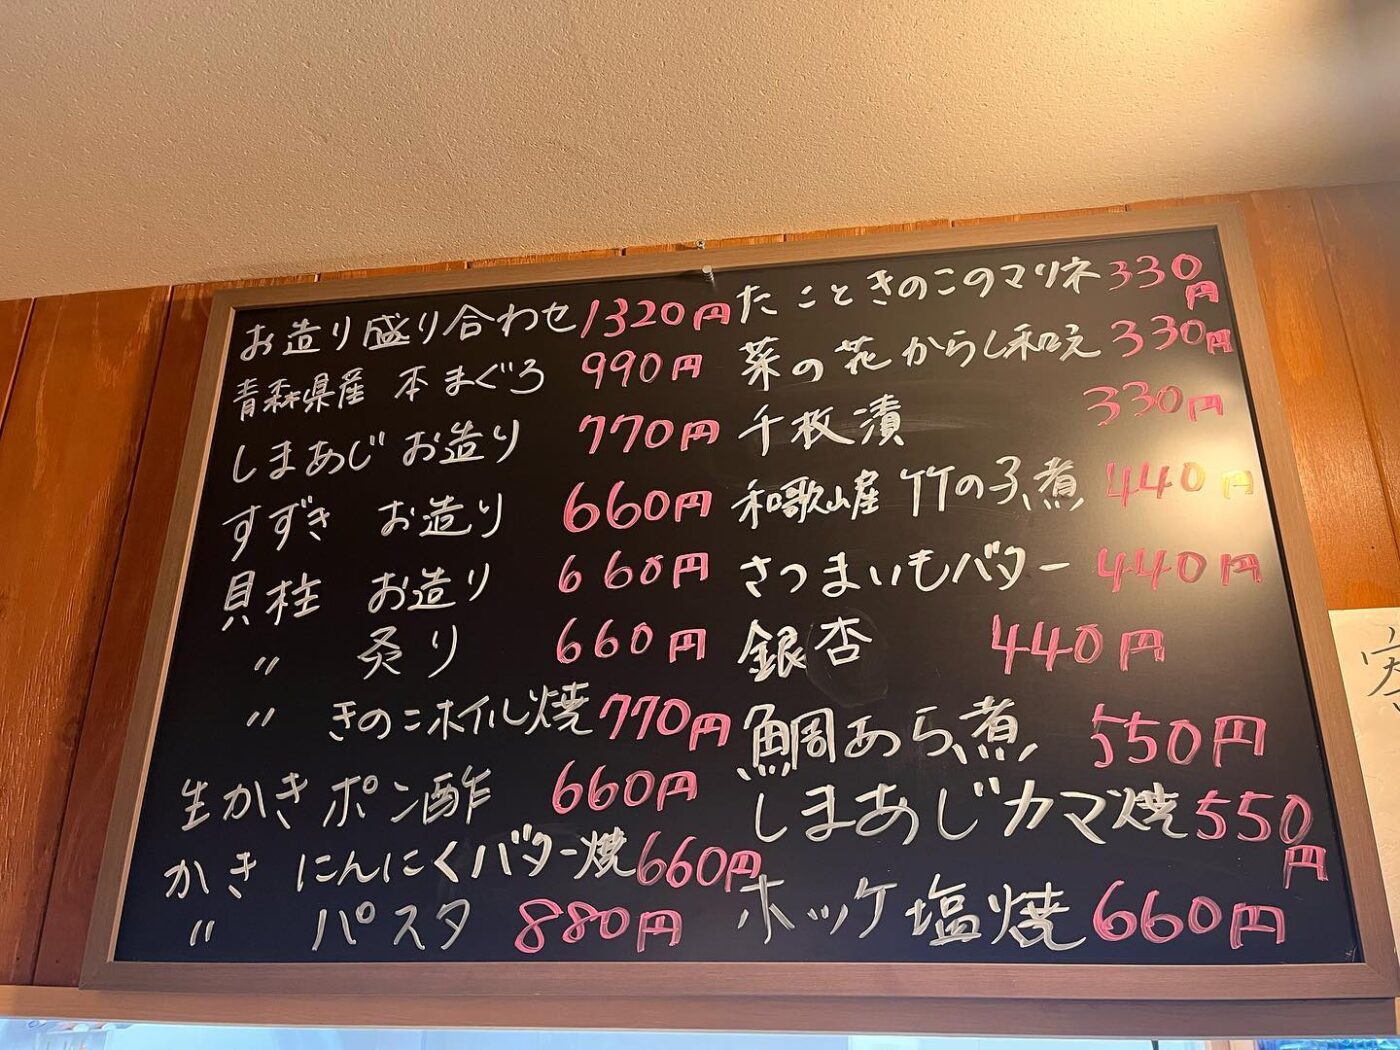 お造り盛り合わせ 1320円
青森県産 本まぐろ 990円
しまあじ お造り 770円
すずき お造り 660円
貝柱 お造り 660円
〃 炙り 660円
〃 きのこホイル焼 770円
生かき ポン酢 660円
かき にんにくバター焼 660円
〃 パスタ 880円
たこときのこのマリネ 330円
菜の花からし和え 330円
千枚漬 330円
和歌山産 竹の子煮 440円
さつまいもバター 440円
銀杏 440円
鯛あら煮 550円
しまあじカマ焼 550円
ホッケ塩焼 660円